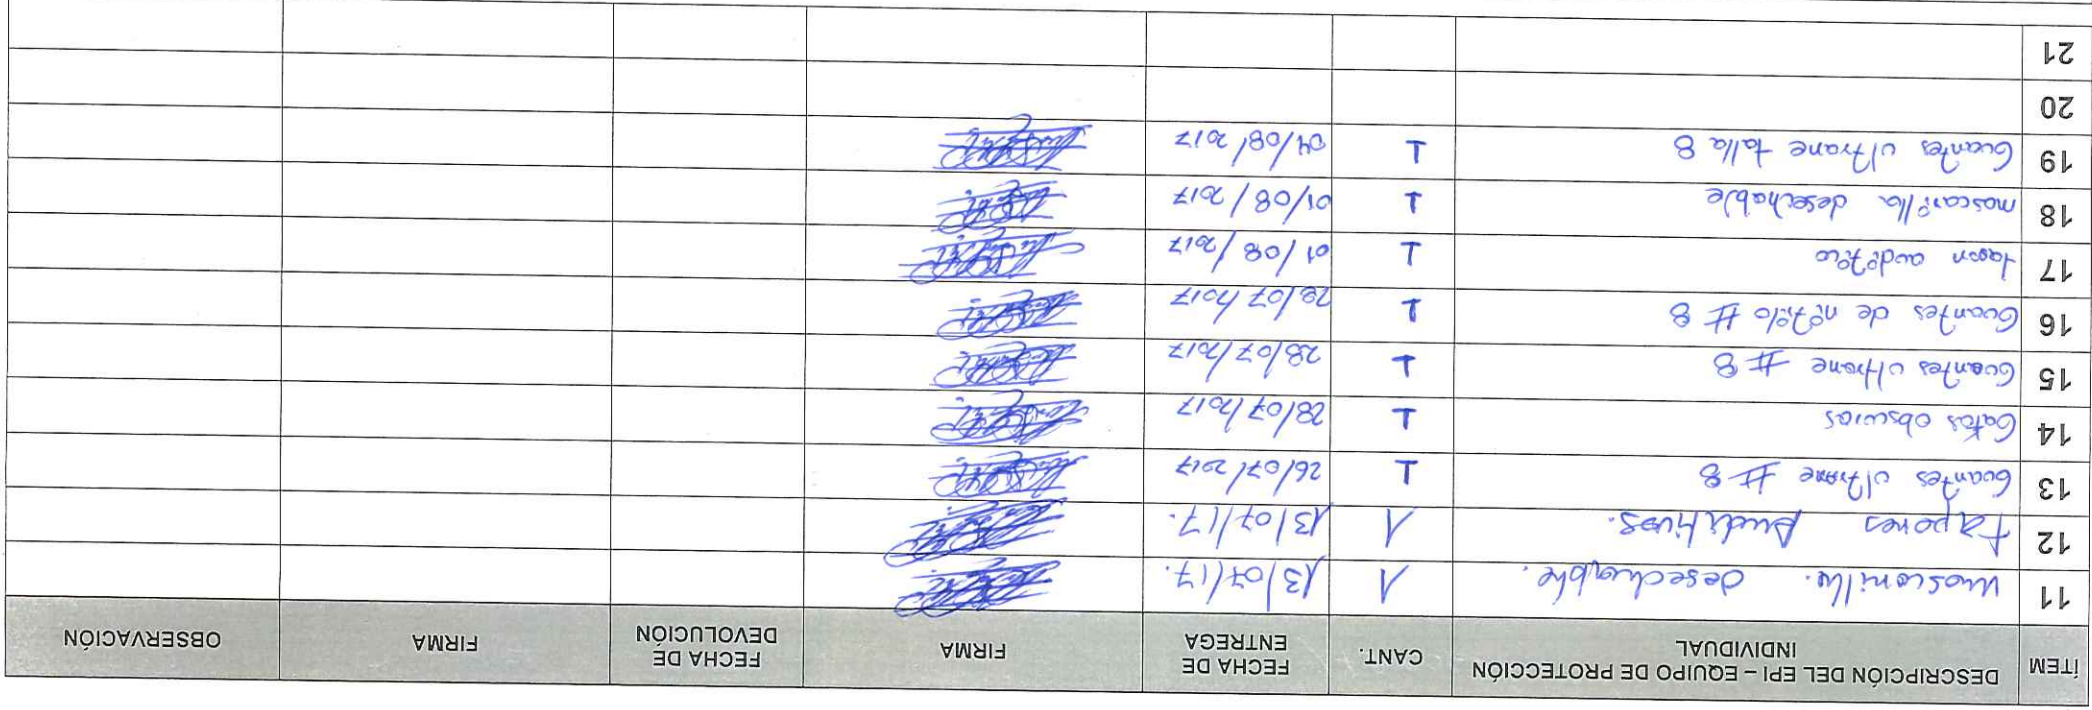 ÍTEM DESCRIPCIÓN DEL EPI – EQUIPO DE PROTECCIÓN INDIVIDUAL CANT. FECHA DE ENTREGA FIRMA FECHA DE DEVOLUCIÓN FIRMA OBSERVACIÓN
11 Mascarilla. desechable. 1 13/07/17.
12 tapones Auditivos. 1 13/07/17.
13 Guantes ultrane #8 1 26/07/2017
14 Gafas obscuras 1 28/07/2017
15 Guantes ultrane #8 1 28/07/2017
16 Guantes de nitrilo #8 1 28/07/2017
17 tapon auditivo 1 01/08/2017
18 mascarilla desechable 1 01/08/2017
19 Guantes ultrane talla 8 1 04/08/2017
20
21